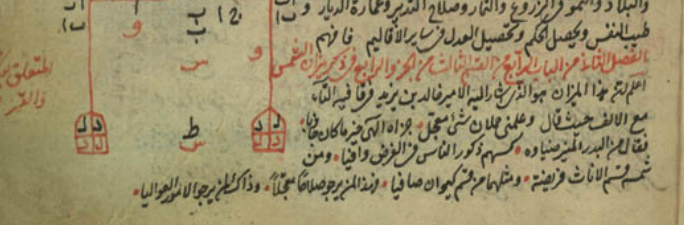 والبلاد والنمو في الزروع والثمار وصلاح التدبير وعمارة الديار و
طيب النفس ويحصل الحكم وتحصيل العدل في ساير الاقاليم فافهم
الفصل من الباب الرابع من القسم الثالث من الجزو الرابع في ذكر ميزان الشمس
اعلم ان هذا الميزان هو الذي اشار اليه الامير خالد بن يزيد في قافية التاء
مع الالف حيث قال وعلمني حلان شيء معجل جزاه الهي خير ما كان
فقال من البدر المنير كسهم ذكور الناس في الفرض وافيا ومن
شمسه قسم الاناث فريضة ومثلهما من قسم كيوان صافيا لهذا لمن يرجو صلاحا معجلا وذا لمن يرجو الامور العواليا
المتعلق
والقمر
ا
و
ب
ب
12
و
س
ط
س
د د
د د